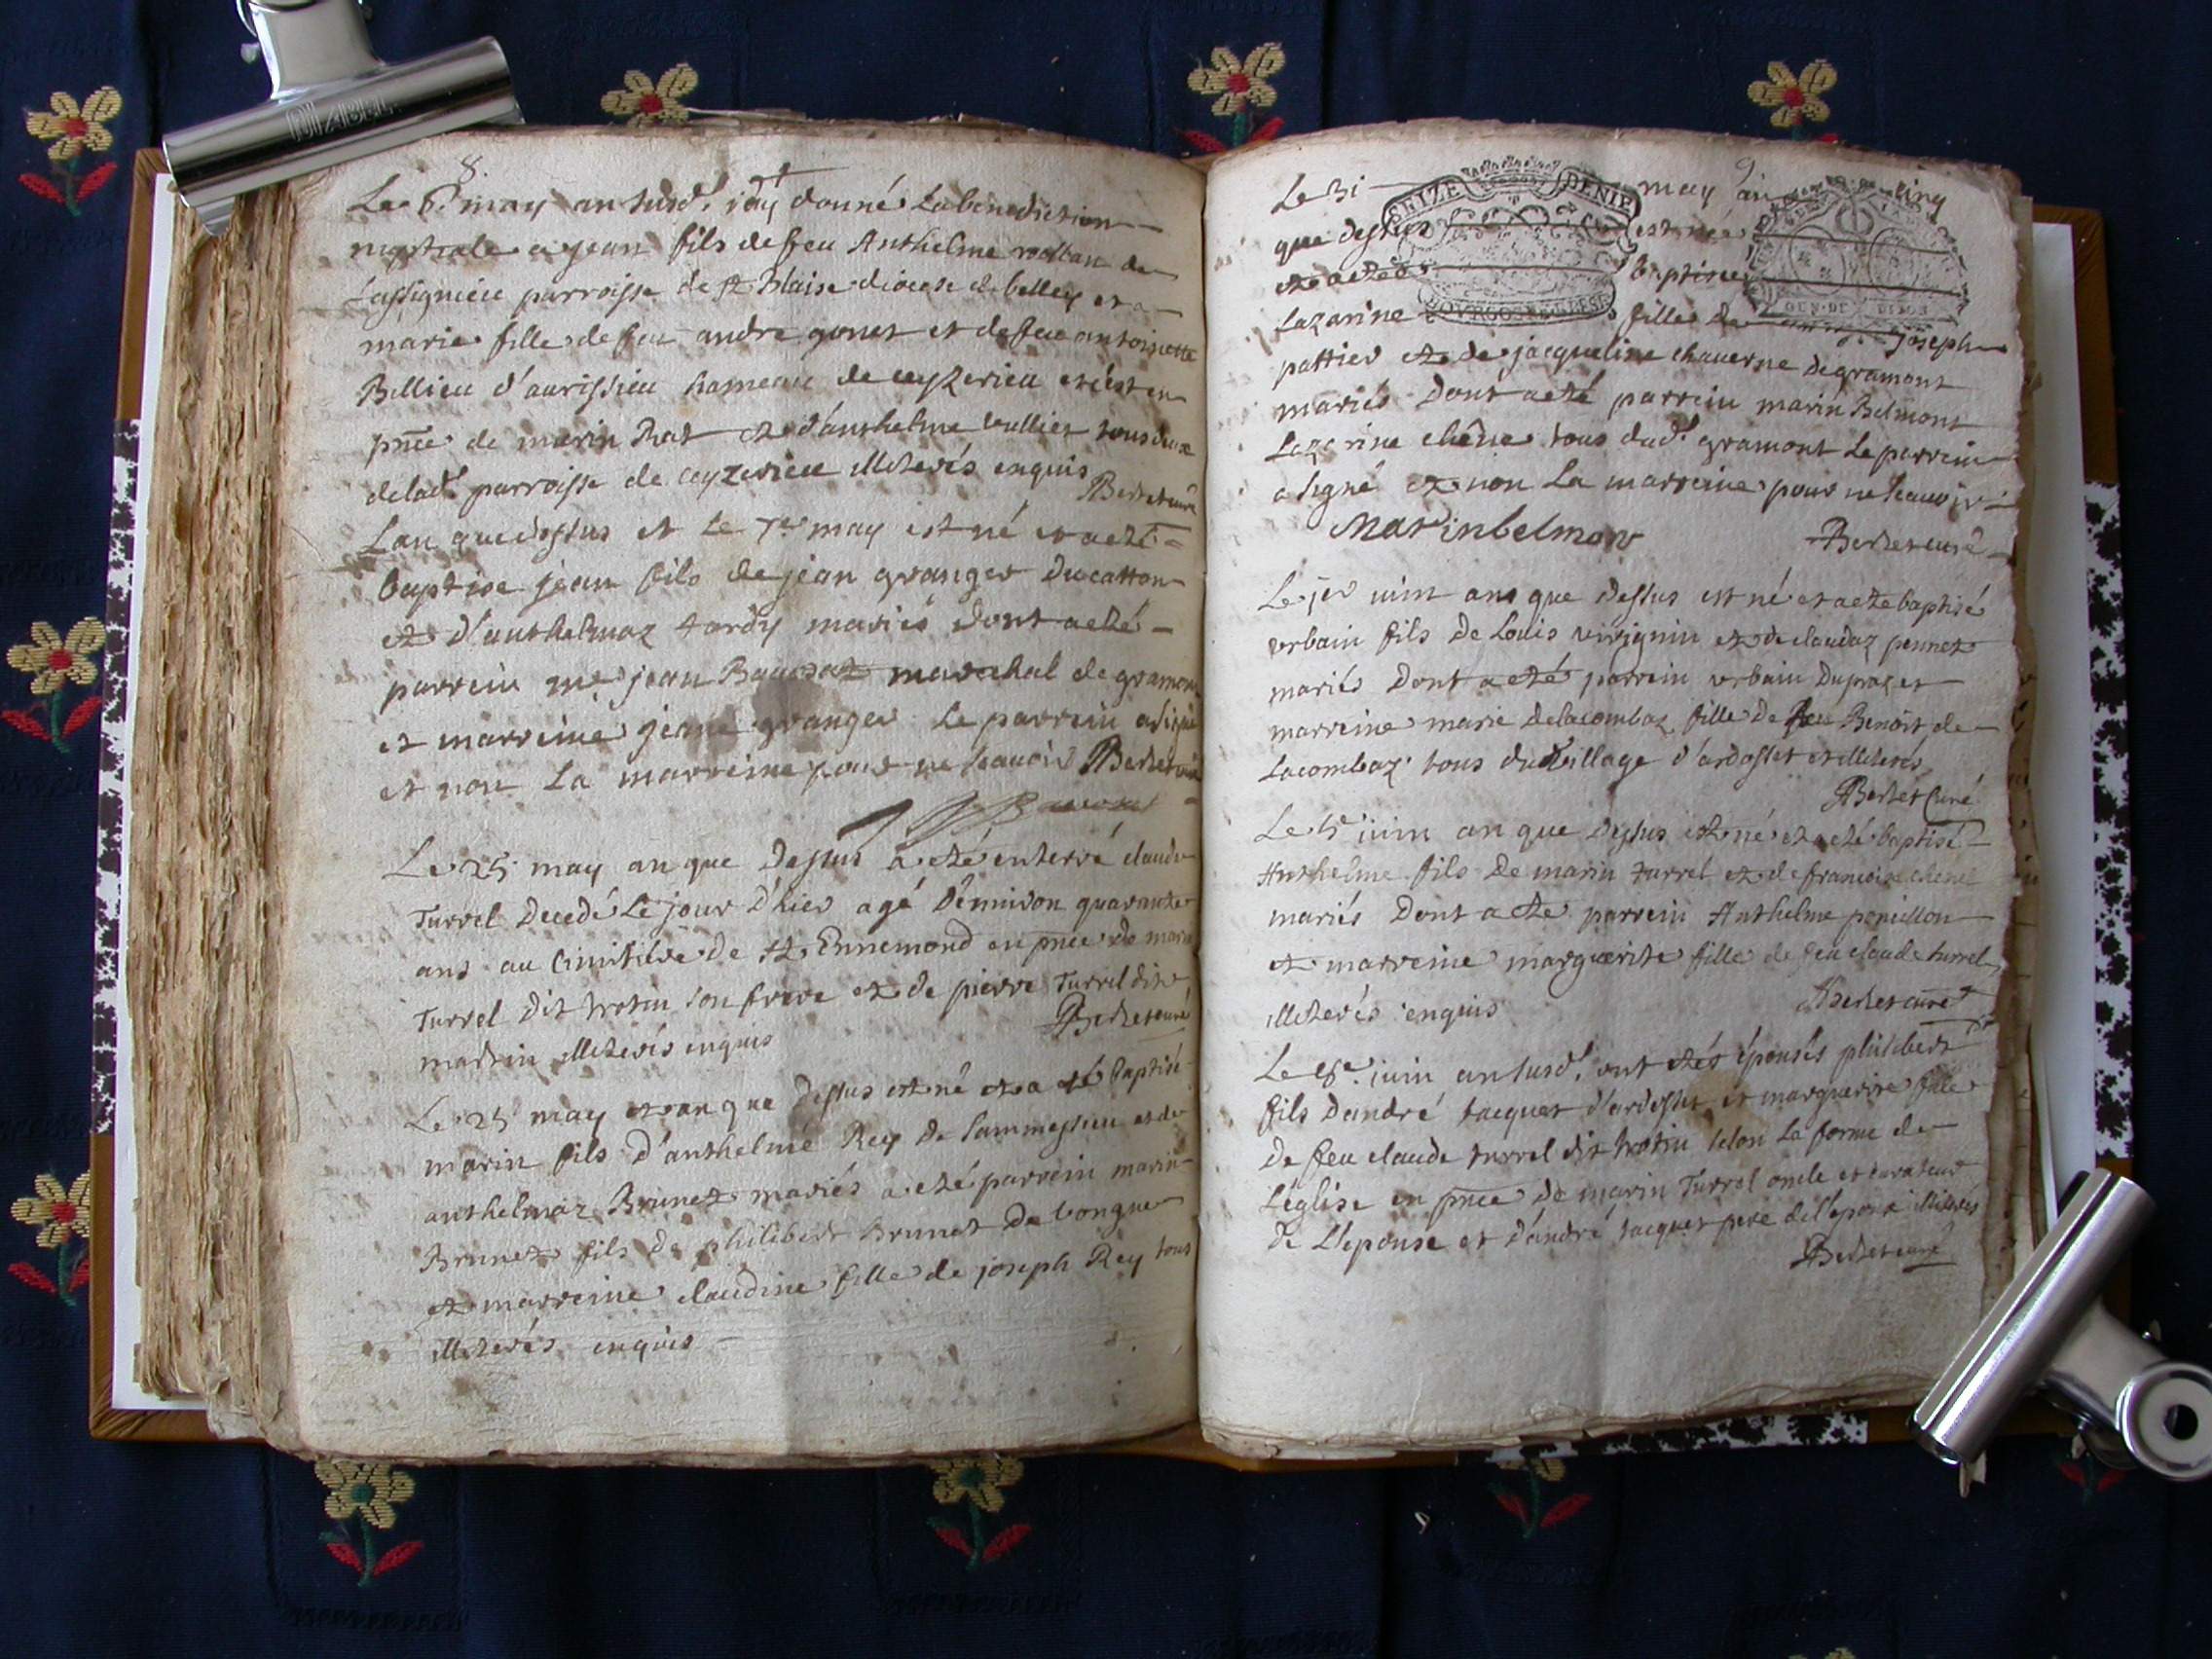 DIZIBEL
8.
Le 6e may an susd. j'ay donné La benediction
nuptiale a jean fils de feu Anthelme de
Lassignieu parroisse de st Blaise diocese de belley et a
marie fille de feu andre gonet et de feue antoinette
Billieu d'aurissieu hameau de ceyzerieu et c'est en
pnce de marin Rat et d'anthelme vulliet tous deux
de lad. parroisse de ceyzerieu illiterés enquis
Berlet curé
Lan que dessus et Le 7e may est né et a eté
baptisé jean fils de jean granger ducatton
et d'anthelmaz tardy mariés dont a eté
parrein me jean marechal de gramont
et marreine jeane granger Le parrein a signé
et non La marreine pour ne scauoir Berlet curé
Le 25 may an que Dessus a eté enterré claude
Turrel Decedé Le jour D'hier agé D'environ quarante
ans au Cimitière de st Ennemond en pnce de marin
Turrel Dit trotin son frere et de pierre Turrel dit
martin illiterés enquis
Berlet curé
Le 25 may et an que Dessus est né et a eté baptisé
marin fils d'anthelme Rey De Sammessieu et de
anthelmaz Brunet mariés a eté parrein marin
Brunet fils de philibert Brunet De vongne
et marreine claudine fille de joseph Rey tous
illiterés enquis
9
Le 31 may an
SEIZE DENIE
que dessus est née
et a eté baptisée
BOURGOGNE BRESSE
GEN. DE DIJON
Lazarine fille de joseph
pattier et de jacqueline chauerne de gramont
mariés Dont a eté parrein marin Belmont
Lazarine chêne tous dud. gramont Le parrein
a signé et non La marreine pour ne scauoir
Marinbelmon
Berlet curé
Le jer juin an que Dessus est né et a eté baptisé
urbain fils De Louis virignin et de claudaz pennet
mariés Dont a eté parrein urbain Dupraz et
marreine marie delacombaz fille De feu Benoit de
Lacombaz tous du village d'ardosset et illiterés
Berlet Curé
Le 5e juin an que Dessus est né et a eté baptisé
Anthelme fils De marin turrel et de francoise chenel
mariés Dont a eté parrein Anthelme
et marreine marguerite fille de feu claude turrel
illiterés enquis
Berlet curé
Le 8e juin an susd. ont etés épousés philibert
fils D'andré Jacquet d'ardosset et marguerite fille
De feu claude turrel dit trotin selon La forme de
L'église en pnce De marin Turrel oncle et curateur
De L'epouse et D'andré Jacquet pere de l'epoux illiterés
Berlet curé